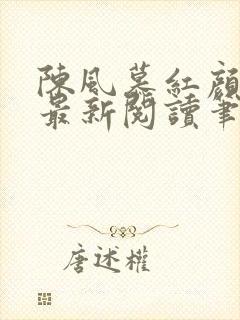 陳風慕紅顏
最新閱讀筆
唐述權